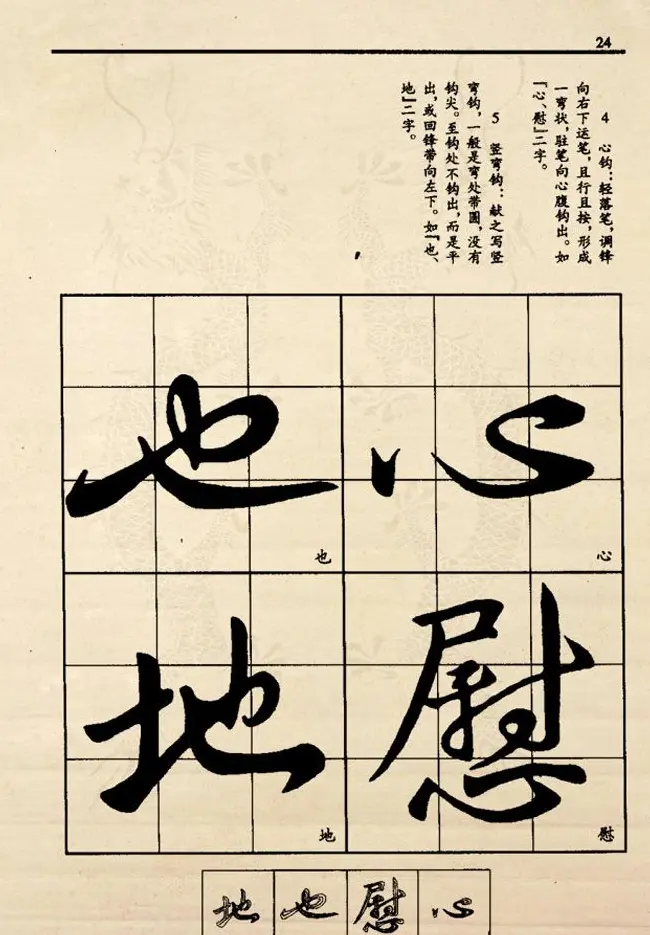 24
4 心钩：轻落笔，调锋
向右下运笔，且行且按，形成
一弯状，驻笔向心腹钩出。如
『心、慰』二字。
5 竖弯钩：献之写竖
弯钩，一般是弯处带圆，没有
钩尖。至钩处不钩出，而是平
出，或回锋带向左下。如『也、
地』二字。
心
心
慰
慰
也
也
地
地
地 也 慰 心